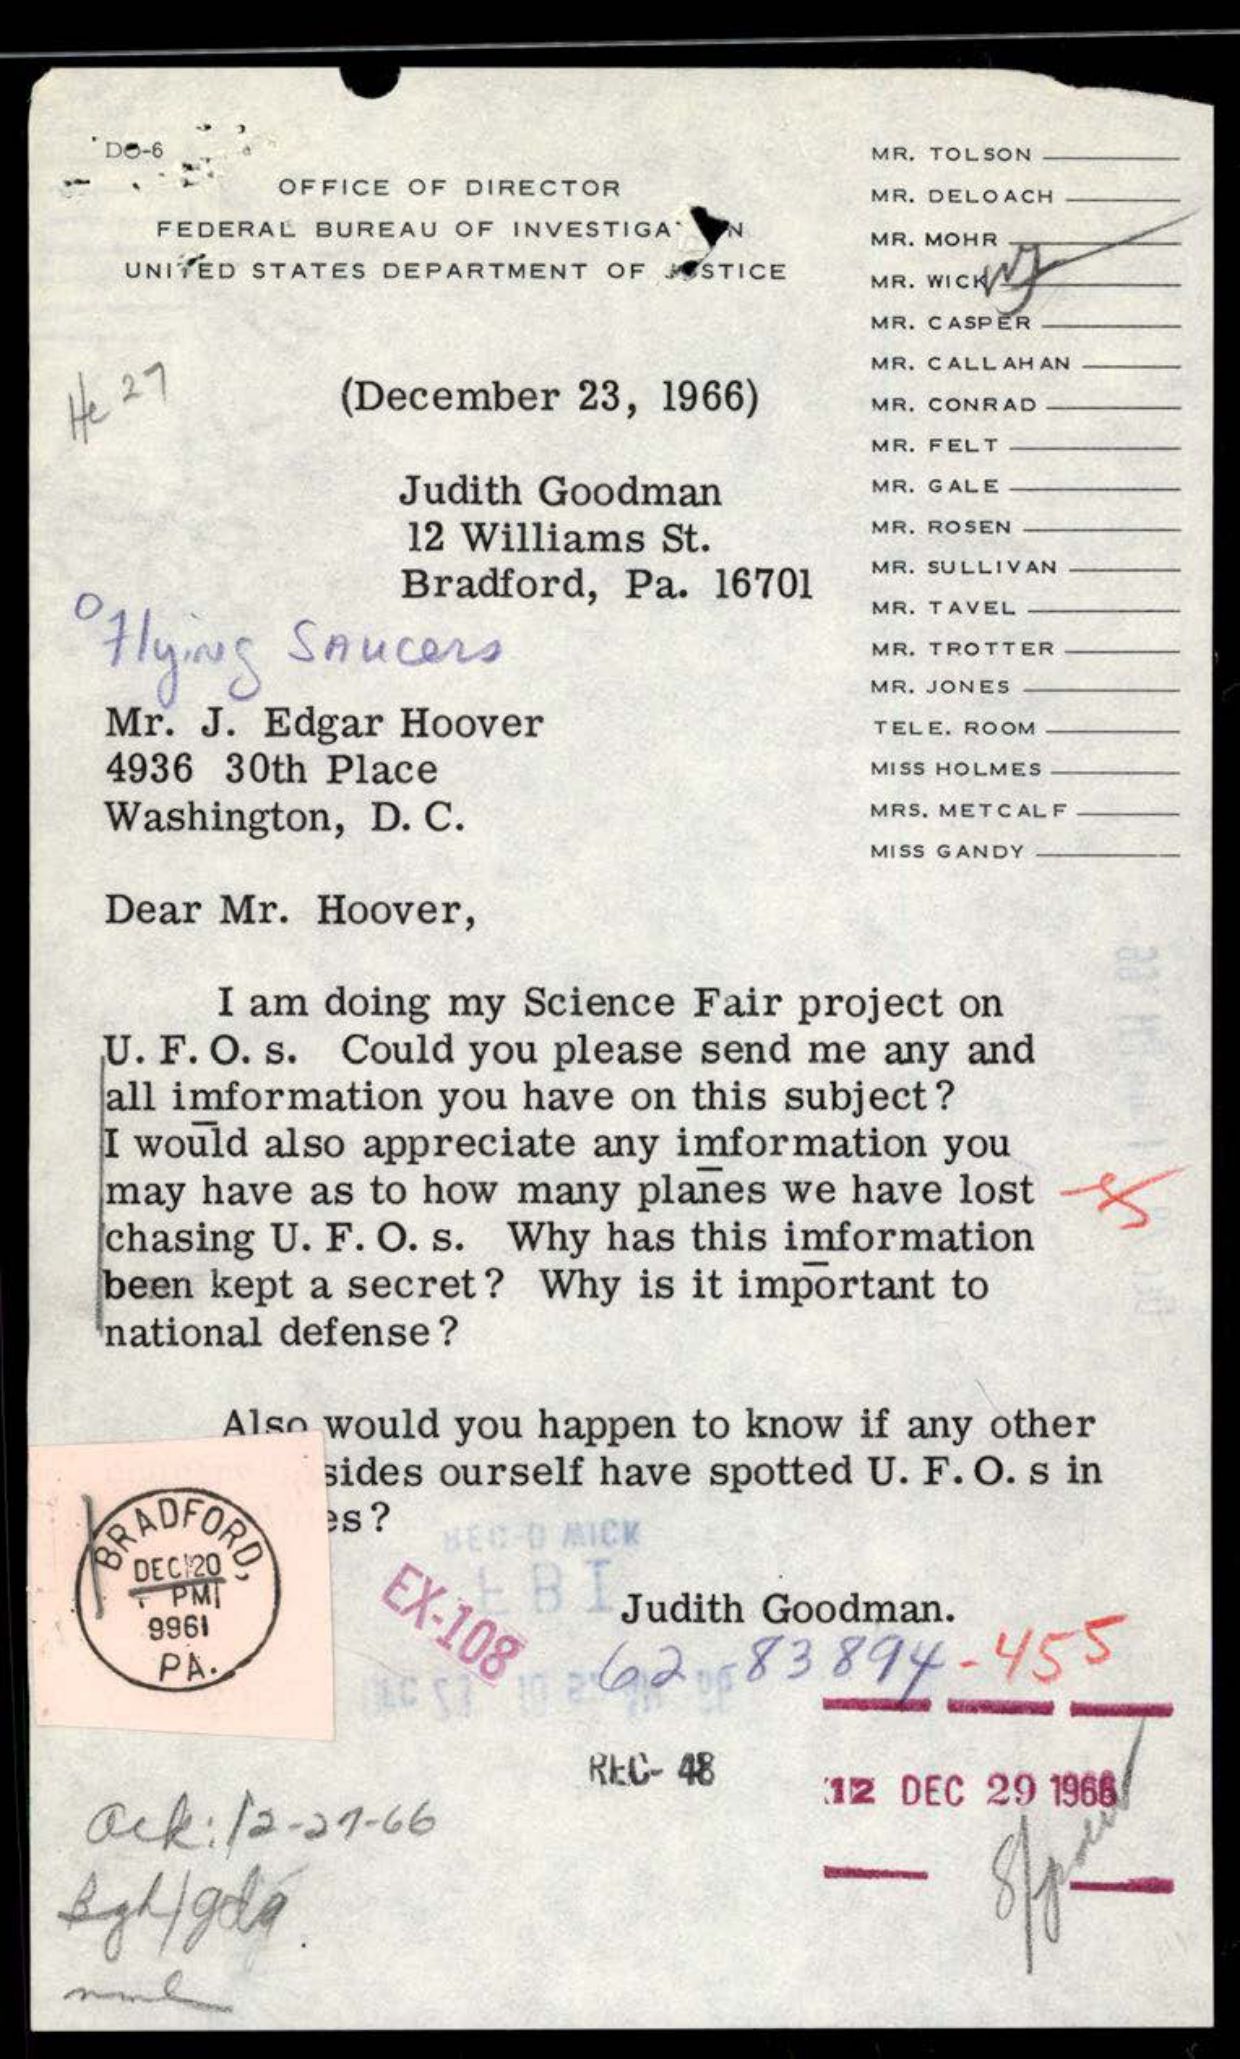 DO-6
OFFICE OF DIRECTOR
FEDERAL BUREAU OF INVESTIGA N
UNITED STATES DEPARTMENT OF J STICE
MR. TOLSON
MR. DELOACH
MR. MOHR
MR. WICK
MR. CASPER
MR. CALLAHAN
MR. CONRAD
MR. FELT
MR. GALE
MR. ROSEN
MR. SULLIVAN
MR. TAVEL
MR. TROTTER
MR. JONES
TELE. ROOM
MISS HOLMES
MRS. METCALF
MISS GANDY
He 27
(December 23, 1966)
Judith Goodman
12 Williams St.
Bradford, Pa. 16701
Flying Saucers
Mr. J. Edgar Hoover
4936 30th Place
Washington, D. C.
Dear Mr. Hoover,
I am doing my Science Fair project on
U. F. O. s. Could you please send me any and
all imformation you have on this subject?
I would also appreciate any imformation you
may have as to how many planes we have lost
chasing U. F. O. s. Why has this imformation
been kept a secret? Why is it important to
national defense?
Also would you happen to know if any other
sides ourself have spotted U. F. O. s in
es?
BRADFORD,
DEC 20
PM
9961
PA.
REC-D WICK
FBI
EX-108
Judith Goodman.
62-83894-455
REC- 48
12 DEC 29 1966
ack: 12-27-66